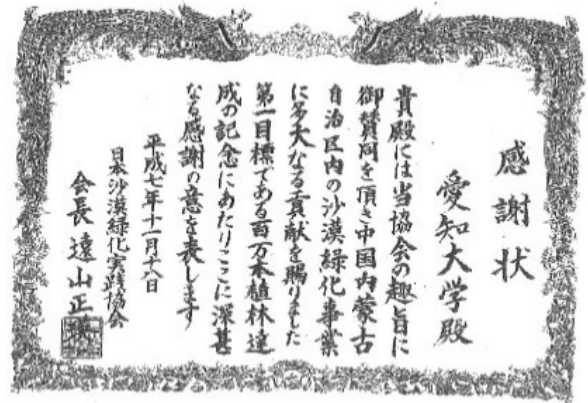 感謝状
愛知大学殿
貴殿には当協会の趣旨に
御賛同を頂き中国内蒙古
自治区内の沙漠緑化事業
に多大なる貢献を賜りました
第一目標である百万本植林達
成の記念にあたりここに深甚
なる感謝の意を表します
平成七年十一月十八日
日本沙漠緑化実践協会
会長 遠山正瑛